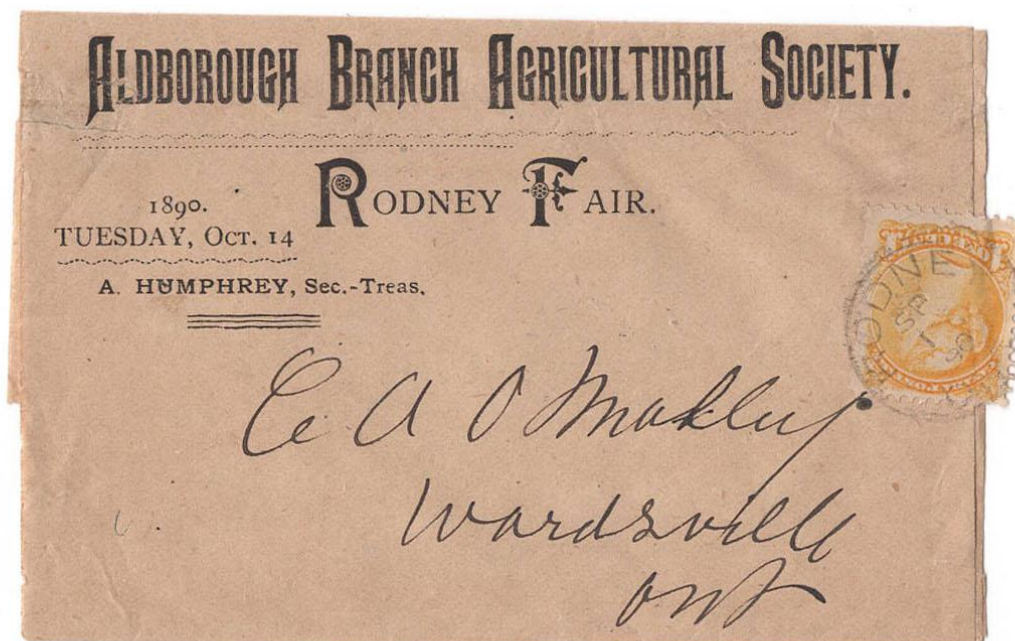 ALDBOROUGH BRANCH AGRICULTURAL SOCIETY.
RODNEY FAIR.
1890.
TUESDAY, OCT. 14
A. HUMPHREY, Sec.-Treas.
RODNEY
SP
1
90
C A O
Wardsville
Ont